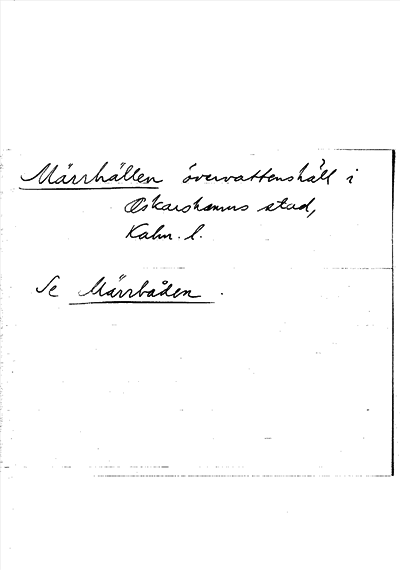 Märrhällen övervattenshäll i
Oskarshamns stad,
Kalm. l.
Se Märrbåden.